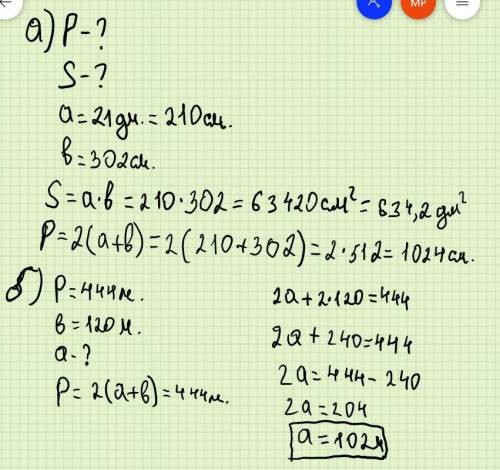 MP
а) P-?
S-?
a = 21 дм. = 210 см.
в = 302 см.
S = a·в = 210·302 = 63420 см² = 634,2 дм²
P = 2(a+в) = 2(210+302) = 2·512 = 1024 см.
б) P = 444 м.
в = 120 м.
a-?
P = 2(a+в) = 444 м.
2a + 2·120 = 444
2a + 240 = 444
2a = 444 - 240
2a = 204
a = 102 м